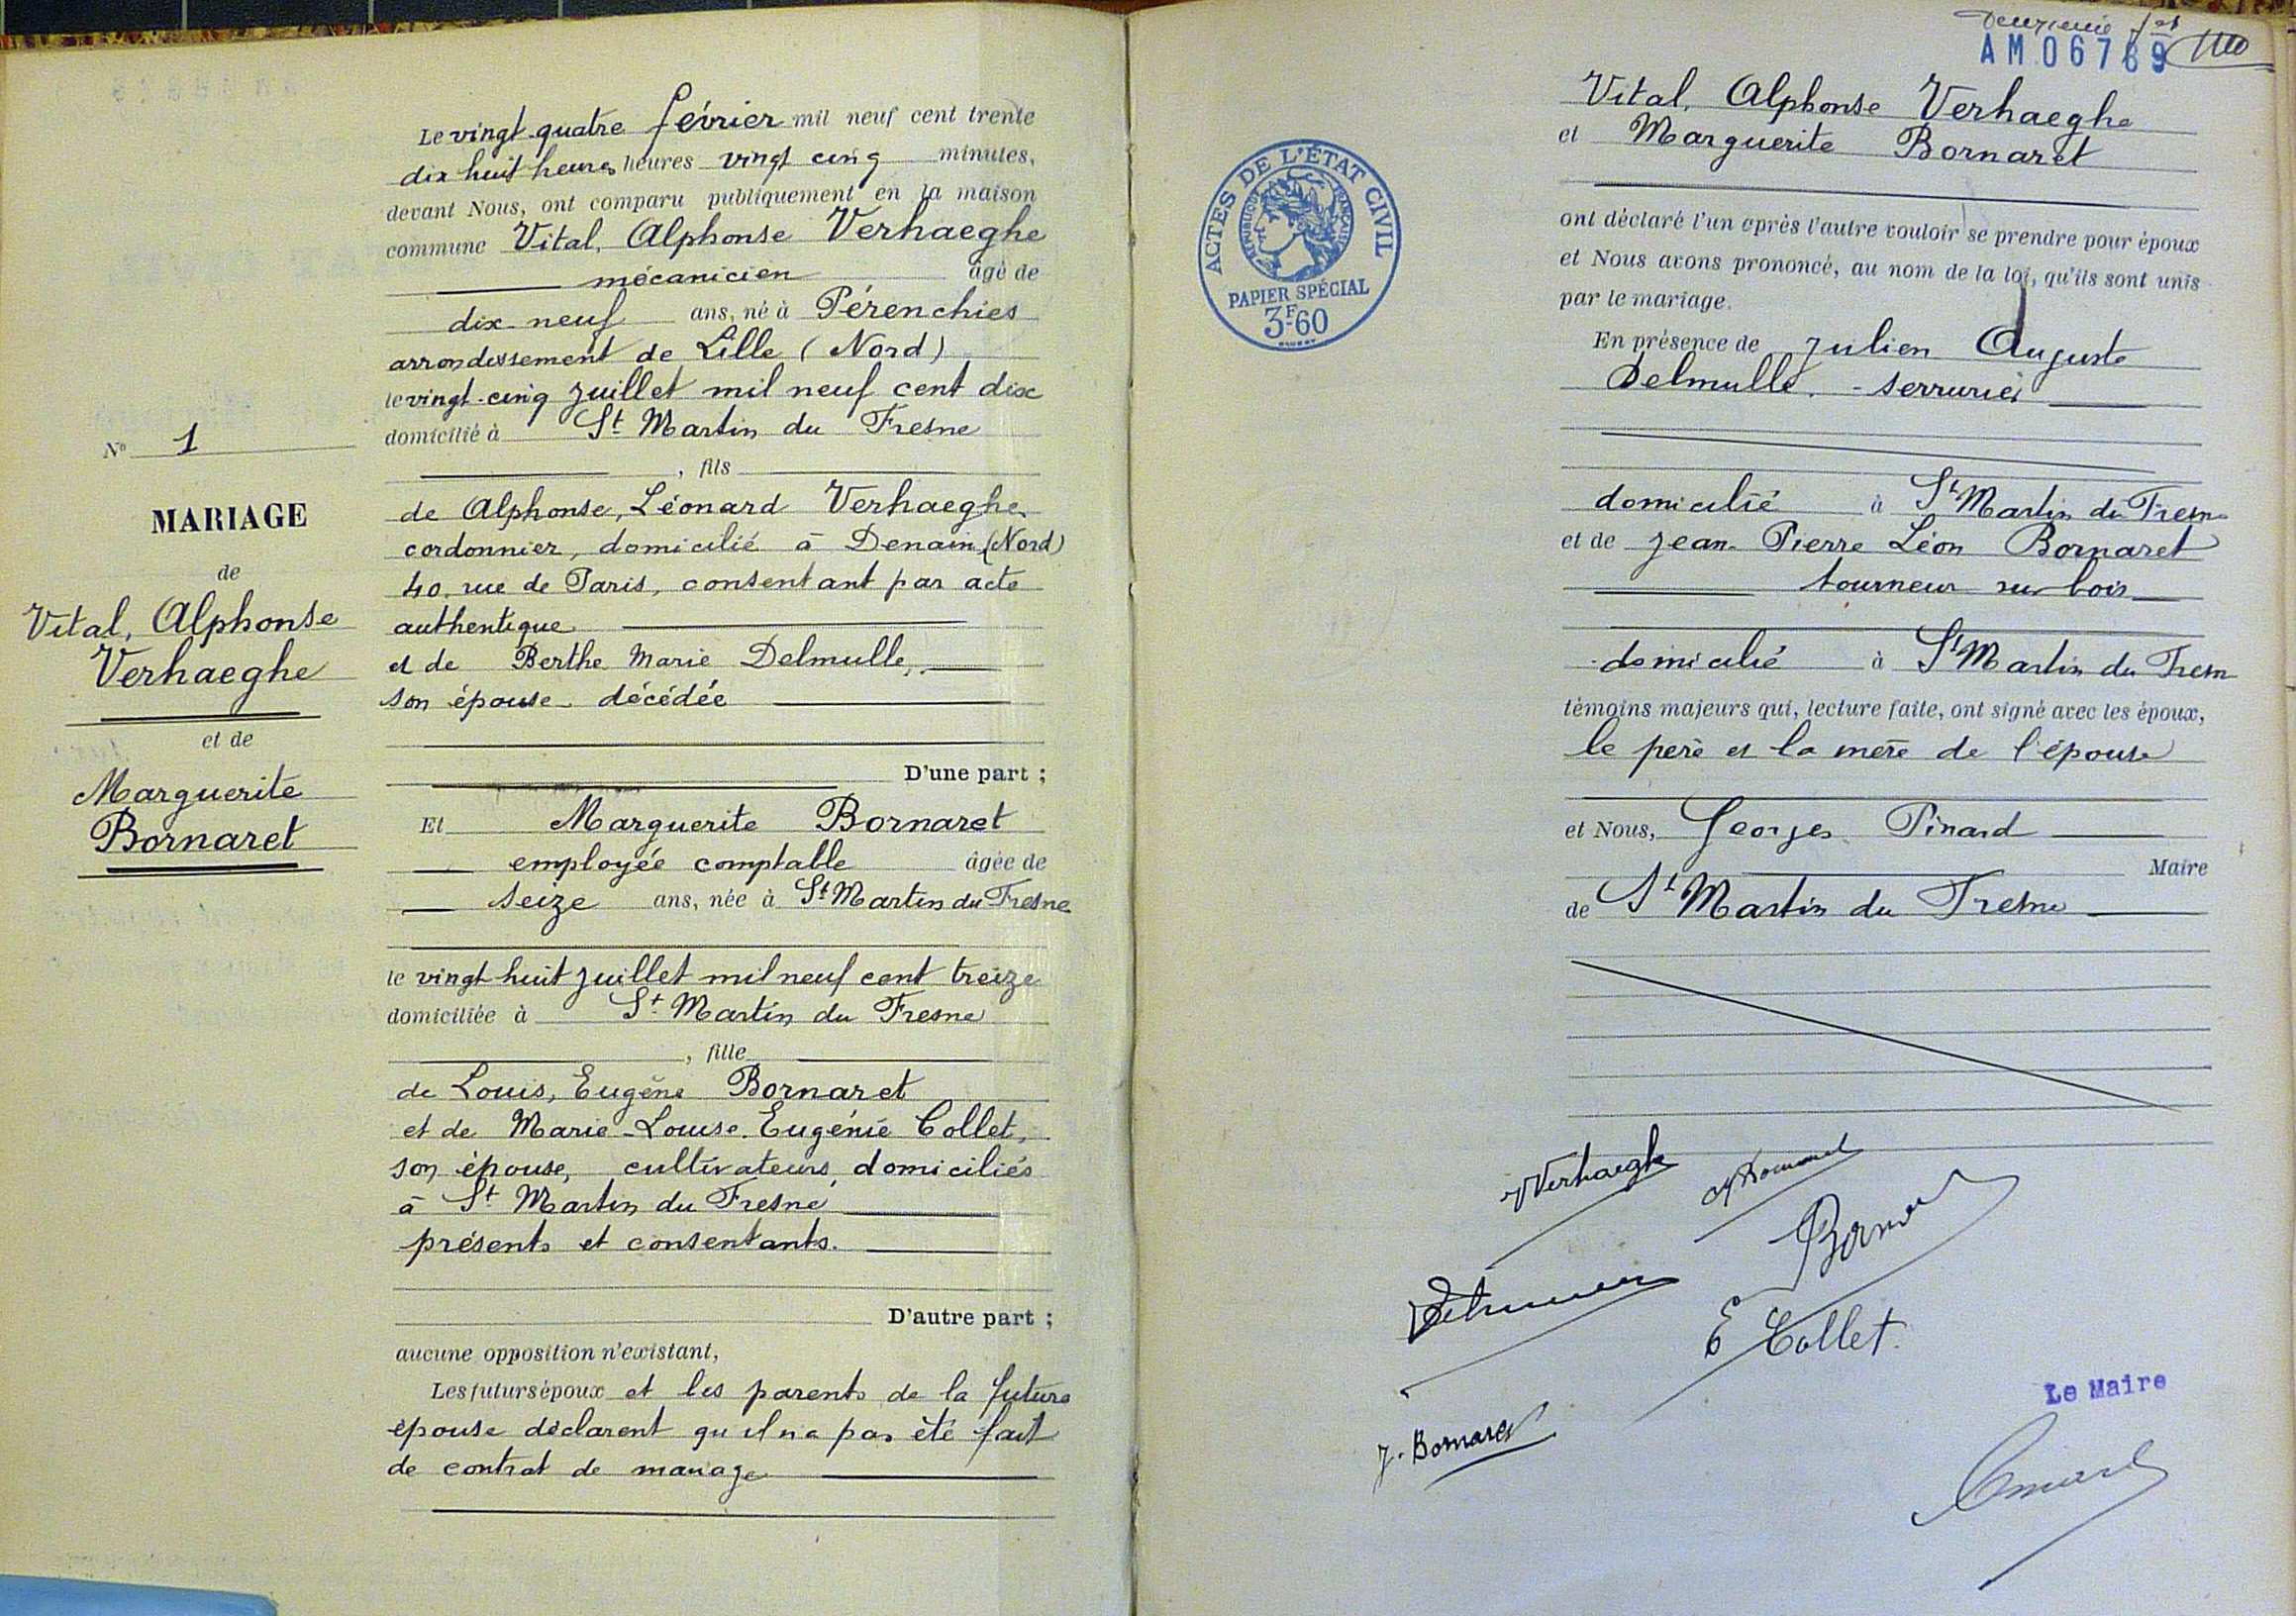 N° 1
MARIAGE
de
Vital, Alphonse
Verhaeghe
et de
Marguerite
Bornaret
Le vingt-quatre février mil neuf cent trente
dix huit heures heures vingt cinq minutes,
devant Nous, ont comparu publiquement en la maison
commune Vital, Alphonse Verhaeghe
mécanicien âgé de
dix-neuf ans, né à Pérenchies
arrondissement de Lille (Nord)
le vingt-cinq juillet mil neuf cent dix
domicilié à St Martin du Fresne
, fils
de Alphonse, Léonard Verhaeghe
cordonnier, domicilié à Denain (Nord)
40, rue de Paris, consentant par acte
authentique
et de Berthe Marie Delmulle,
son épouse décédée
D'une part ;
Et Marguerite Bornaret
employée comptable âgée de
seize ans, née à St Martin du Fresne
le vingt huit juillet mil neuf cent treize
domiciliée à St Martin du Fresne
, fille
de Louis, Eugène Bornaret
et de Marie-Louise Eugénie Collet,
son épouse, cultivateurs, domiciliés
à St Martin du Fresne,
présents et consentants.
D'autre part ;
aucune opposition n'existant,
Les futurs époux et les parents de la future
épouse déclarent qu'il n'a pas été fait
de contrat de mariage
Deuxième
AM 06789
ACTES DE L'ÉTAT CIVIL
RÉPUBLIQUE FRANÇAISE
PAPIER SPÉCIAL
3F60
Vital, Alphonse Verhaeghe
et Marguerite Bornaret
ont déclaré l'un après l'autre vouloir se prendre pour époux
et Nous avons prononcé, au nom de la loi, qu'ils sont unis
par le mariage.
En présence de Julien Auguste
Delmulle, - serrurier
domicilié à St Martin du Fresne
et de Jean-Pierre Léon Bornaret
tourneur sur bois
domicilié à St Martin du Fresn
témoins majeurs qui, lecture faite, ont signé avec les époux,
le père et la mère de l'épouse
et Nous, Georges Pinard
Maire
de St Martin du Fresne
Verhaeghe
E Collet
J. Bornaret
Le Maire